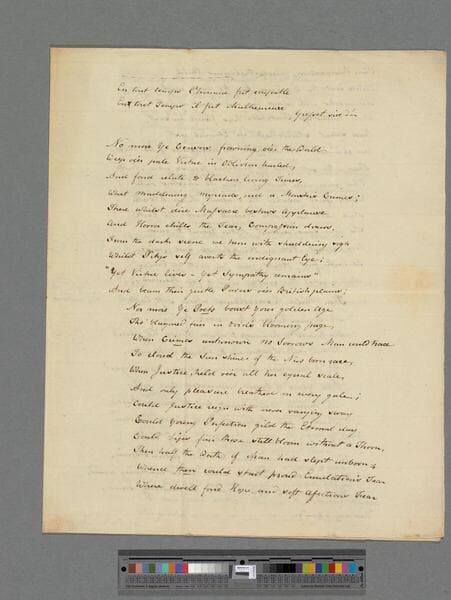 En tout temps l'homme fut coupable
En tout temps il fut Malheureux
Gresset
No more Ye Censors frowning o'er the World
Weep o'er pale Virtue in Oblivion hurled,
And fond relate to blacken living Times,
What maddening myriads, and a Monster's Crimes;
There whilst dire Massacre bestows applause
And Horror chills the Tear, Compassion draws,
Turn the dark scene we turn with shuddering sigh
Whilst Pity's self averts the indignant Eye;
"Yet Virtue lives – yet Sympathy remains"
And beam their gentle Powers o'er British plains;
Nor more Ye Poets boast your golden Age
Tho' blazoned fair in Ovid's blooming page,
When Crimes unknown no Sorrows Man could trace
To cloud the Sun shine of the New born race,
When Justice, held o'er all her equal scale,
And only pleasure breathed in every gale;
Could Justice reign with never varying sway
Could young Perfection gild the Eternal day
Could life's fair these still bloom without a Thorn,
Then half the Worth of Man had slept unborn;
Whence then could start proud Emulation's Tear
Where dwell fond Hope and soft Afections Fear